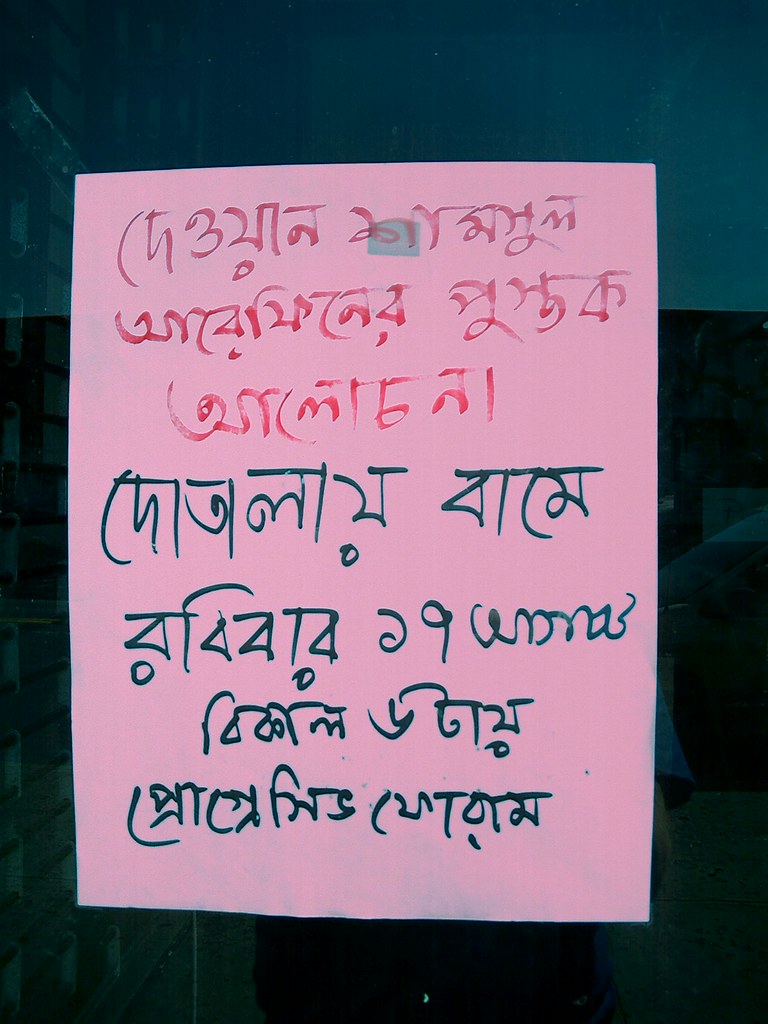 দেওয়ান শামসুল
আরেফিনের পুস্তক
আলোচনা
দোতালায় বামে
রবিবার ১৭ আগষ্ট
বিকাল ৬ টায়
প্রোগ্রেসিভ ফোরাম